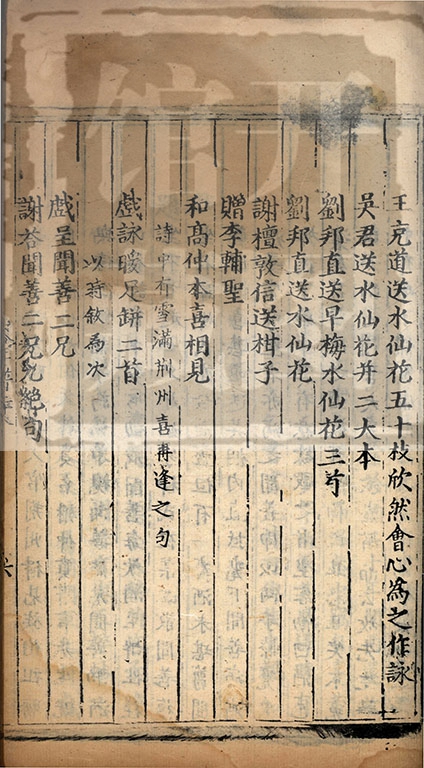 王充道送水仙花五十枝欣然會心為之作詠
吳君送水仙花并二大本
劉邦直送早梅水仙花三首
劉邦直送水仙花
謝檀敦信送柑子
贈李輔聖
和高仲本喜相見
詩中有雪滿荆州喜再逢之句
戲詠暖足缾二首
以詩敘為次
戲呈聞善二兄
謝荅聞善二兄絶句
六